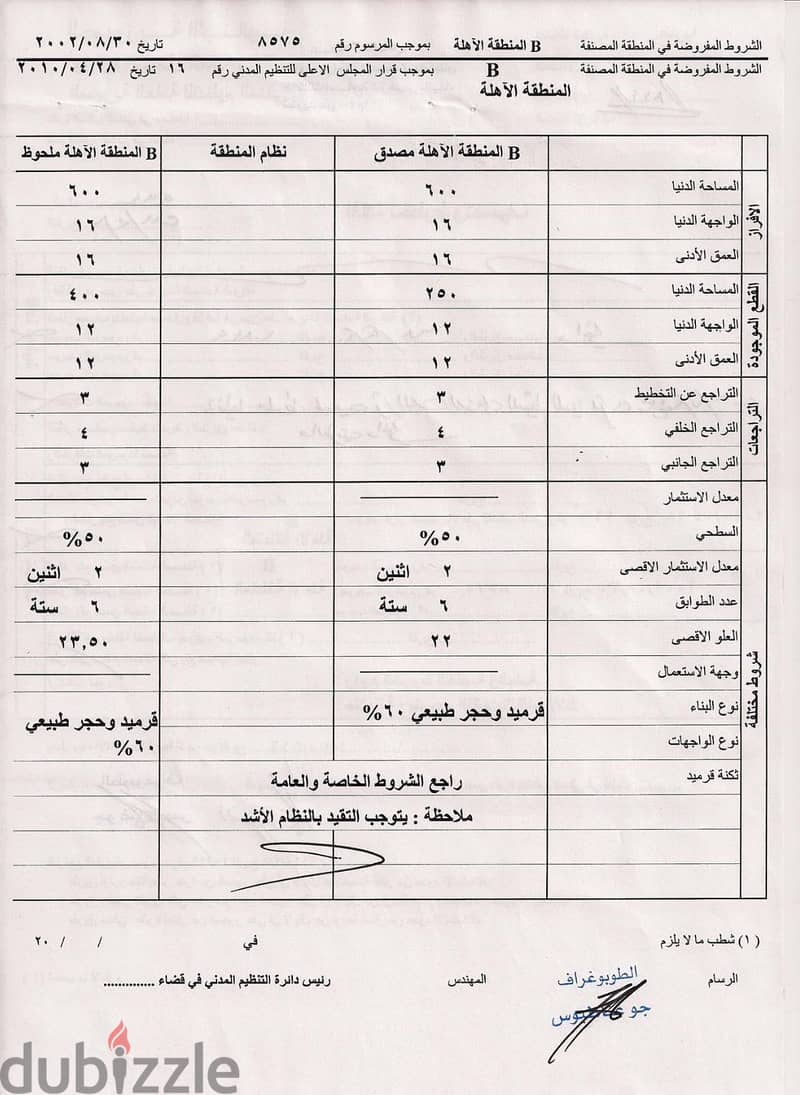 الشروط المفروضة في المنطقة المصنفة B المنطقة الآهلة بموجب المرسوم رقم ٨٥٧٥ تاريخ ٢٠٠٢/٠٨/٣٠
الشروط المفروضة في المنطقة المصنفة B بموجب قرار المجلس الاعلى للتنظيم المدني رقم ١٦ تاريخ ٢٠١٠/٠٤/٢٨
المنطقة الآهلة
B المنطقة الآهلة مصدق نظام المنطقة B المنطقة الآهلة ملحوظ
الافراز
المساحة الدنيا ٦٠٠ ٦٠٠
الواجهة الدنيا ١٦ ١٦
العمق الأدنى ١٦ ١٦
القطع الموجودة
المساحة الدنيا ٢٥٠ ٤٠٠
الواجهة الدنيا ١٢ ١٢
العمق الأدنى ١٢ ١٢
التراجعات
التراجع عن التخطيط ٣ ٣
التراجع الخلفي ٤ ٤
التراجع الجانبي ٣ ٣
شروط مختلفة
معدل الاستثمار
السطحي ٥٠% ٥٠%
معدل الاستثمار الاقصى ٢ اثنين ٢ اثنين
عدد الطوابق ٦ ستة ٦ ستة
العلو الاقصى ٢٢ ٢٣,٥٠
وجهة الاستعمال
نوع البناء قرميد وحجر طبيعي ٦٠% قرميد وحجر طبيعي
نوع الواجهات ٦٠%
ثكنة قرميد راجع الشروط الخاصة والعامة
ملاحظة : يتوجب التقيد بالنظام الأشد
(١) شطب ما لا يلزم في / / ٢٠
الرسام الطوبوغراف المهندس رئيس دائرة التنظيم المدني في قضاء .............
جو
dubizzle